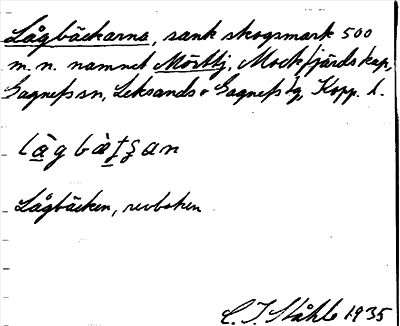 Lågbäckarna, sank skogsmark 500
m. n. namnet Mörttj. Mockfjärds kap,
Gagnefs sn, Leksands o Gagnefs tg, Kopp. l.
Lågbäcken, revboken
C. I. Ståhle 1935